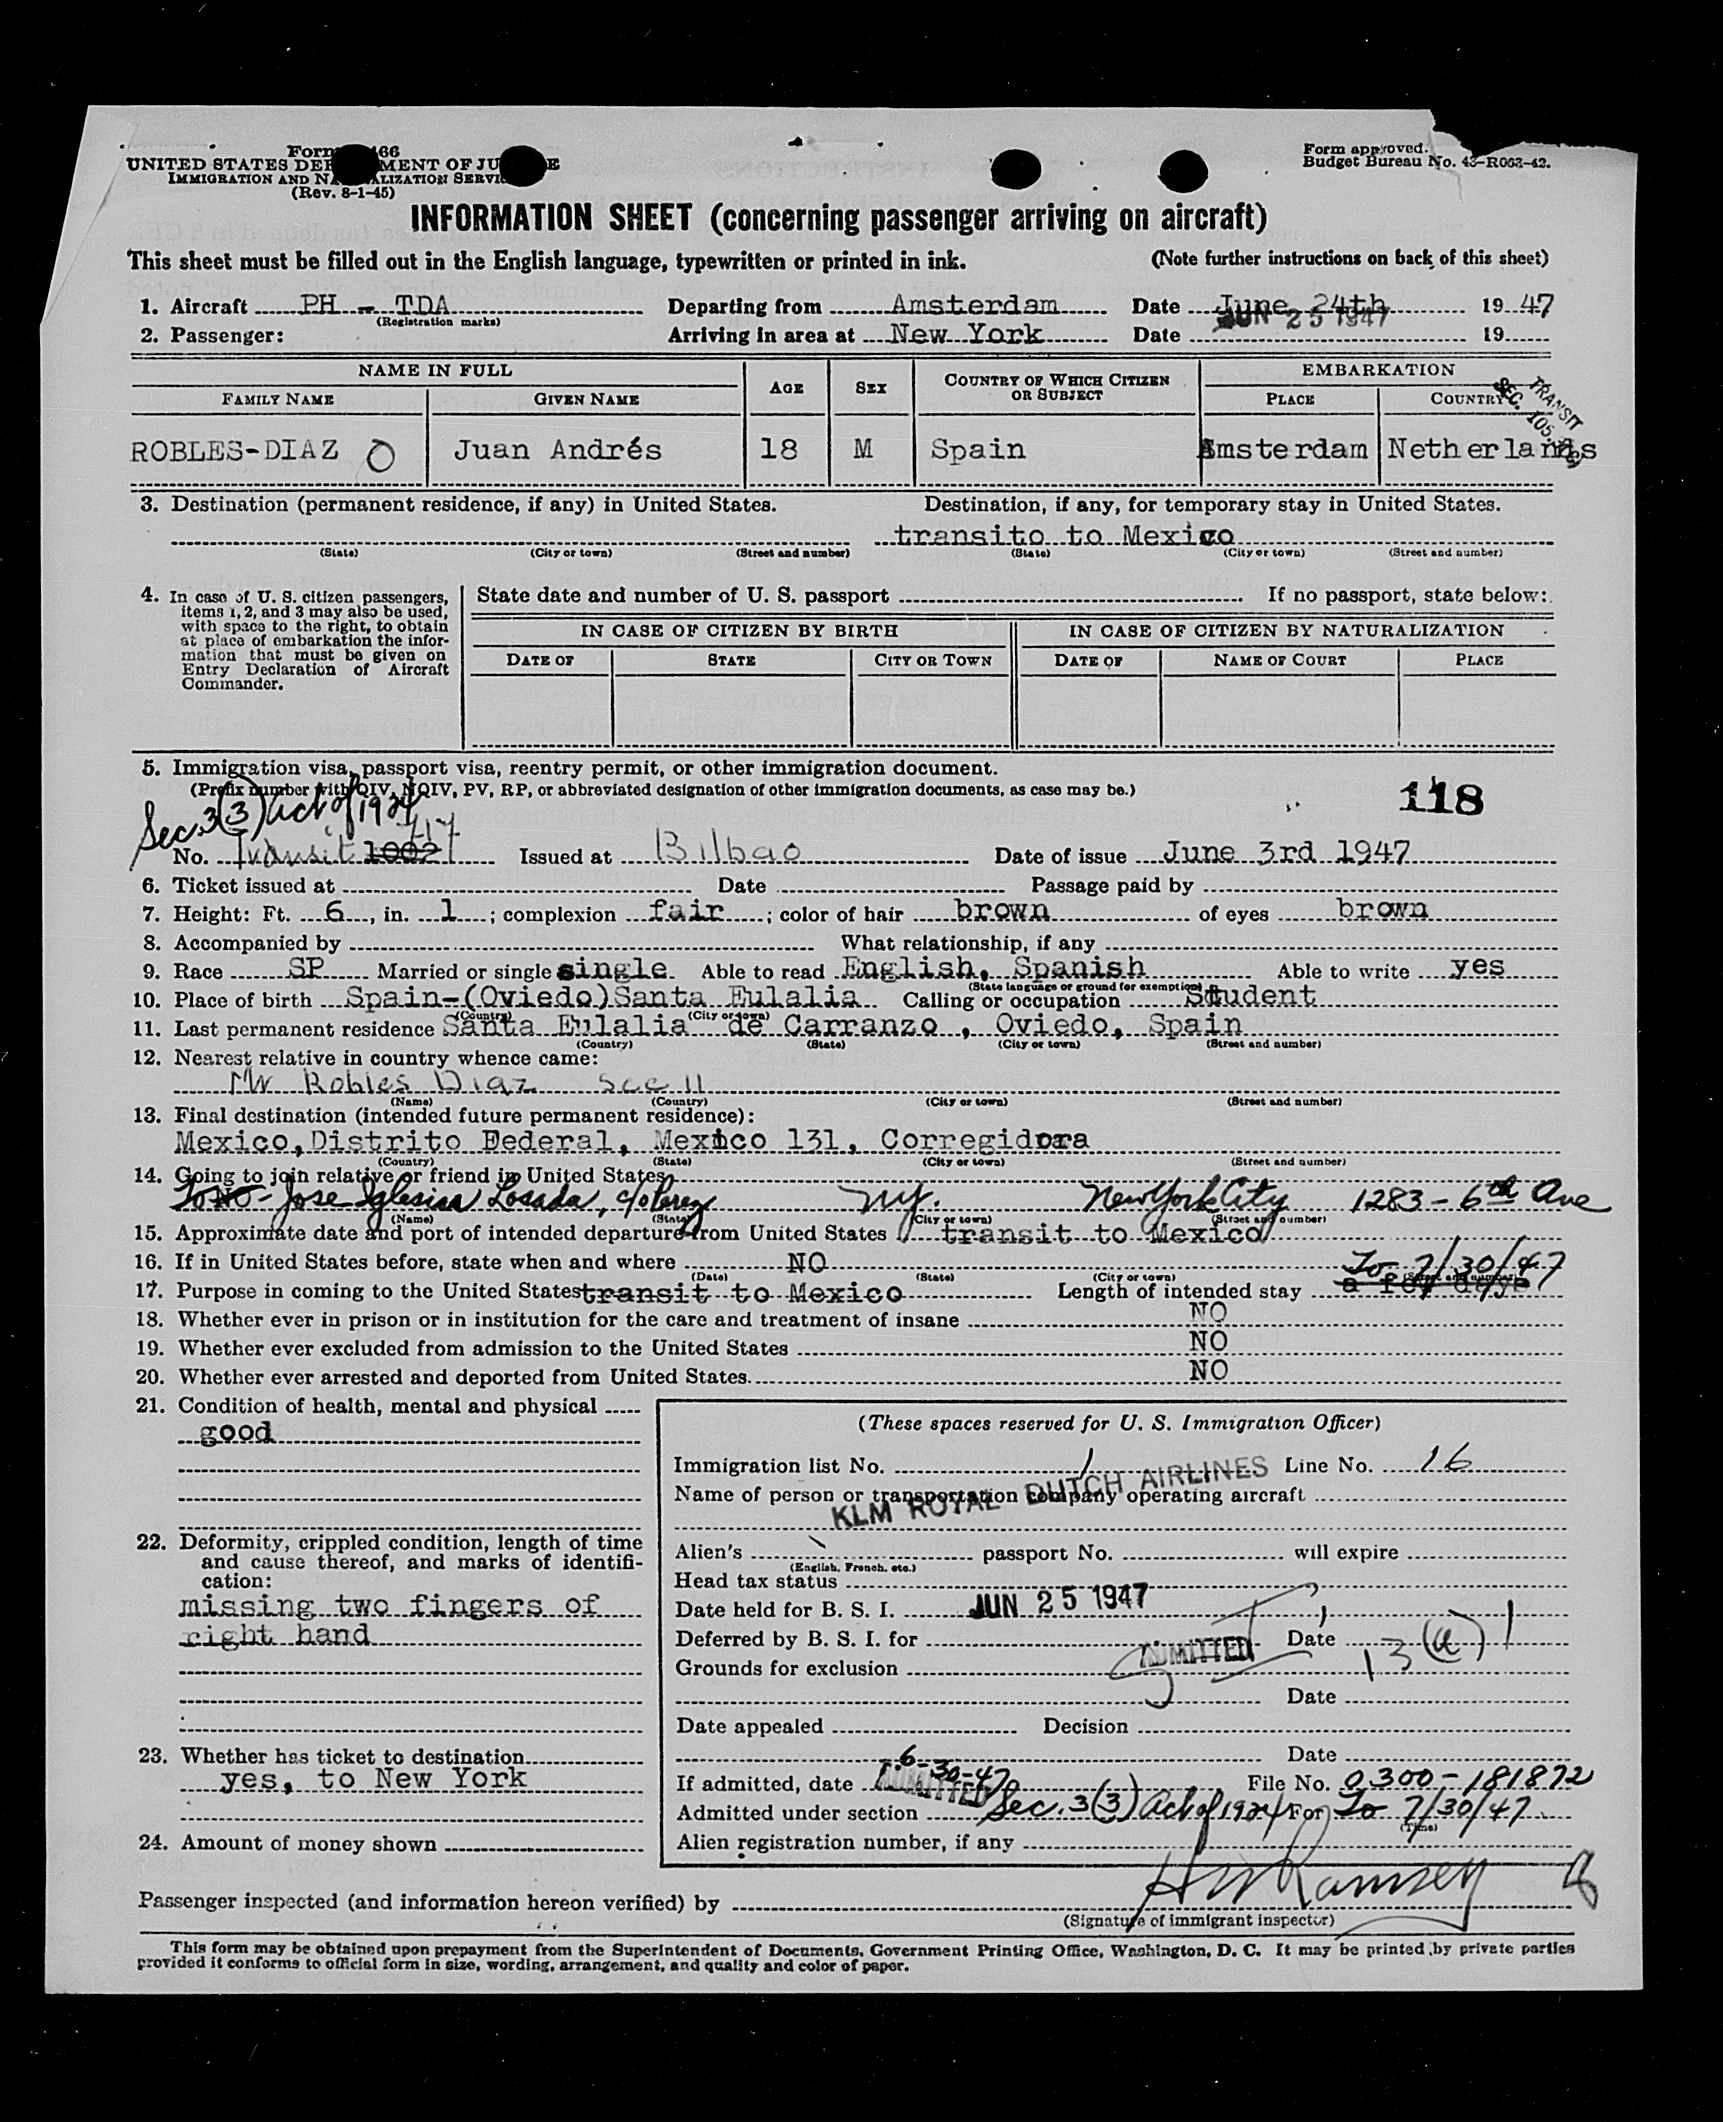 Form 66
UNITED STATES DEP MENT OF JU E
IMMIGRATION AND NA ALIZATION SERVI
(Rev. 8-1-45)
Form approved.
Budget Bureau No. 43-R063-42.
INFORMATION SHEET (concerning passenger arriving on aircraft)
This sheet must be filled out in the English language, typewritten or printed in ink. (Note further instructions on back of this sheet)
1. Aircraft PH - TDA Departing from Amsterdam Date June 24th 19 47
(Registration marks)
JUN 25 1947
2. Passenger: Arriving in area at New York Date 19
NAME IN FULL AGE SEX COUNTRY OF WHICH CITIZEN OR SUBJECT EMBARKATION
FAMILY NAME GIVEN NAME PLACE COUNTRY
TRANSIT
SEC. 105.
ROBLES-DIAZ Juan Andrés 18 M Spain Amsterdam Netherlands
3. Destination (permanent residence, if any) in United States. Destination, if any, for temporary stay in United States.
transito to Mexico
(State) (City or town) (Street and number) (State) (City or town) (Street and number)
4. In case of U. S. citizen passengers, items 1, 2, and 3 may also be used, with space to the right, to obtain at place of embarkation the information that must be given on Entry Declaration of Aircraft Commander.
State date and number of U. S. passport If no passport, state below:
IN CASE OF CITIZEN BY BIRTH IN CASE OF CITIZEN BY NATURALIZATION
DATE OF STATE CITY OR TOWN DATE OF NAME OF COURT PLACE
5. Immigration visa, passport visa, reentry permit, or other immigration document.
(Prefix number with QIV, NQIV, PV, RP, or abbreviated designation of other immigration documents, as case may be.)
118
Sec. 3(3) Act of 1924
No. Transit 1002 Issued at Bilbao Date of issue June 3rd 1947
6. Ticket issued at Date Passage paid by
7. Height: Ft. 6, in. 1; complexion fair; color of hair brown of eyes brown
8. Accompanied by What relationship, if any
9. Race SP Married or single single Able to read English, Spanish Able to write yes
(State language or ground for exemption)
10. Place of birth Spain-(Oviedo)Santa Eulalia Calling or occupation Student
(Country) (City or town)
11. Last permanent residence Santa Eulalia de Carranzo, Oviedo, Spain
(Country) (State) (City or town) (Street and number)
12. Nearest relative in country whence came:
Mr Robles Diaz See 11
(Name) (Country) (City or town) (Street and number)
13. Final destination (intended future permanent residence):
Mexico, Distrito Federal, Mexico 131, Corregidora
(Country) (State) (City or town) (Street and number)
14. Going to join relative or friend in United States
To NO - Jose Iglesias Losada, c/o Perez N.Y. New York City 1283 - 6th Ave
(Name) (State) (City or town) (Street and number)
15. Approximate date and port of intended departure from United States transit to Mexico
16. If in United States before, state when and where NO To 7/30/47
(Date) (State) (City or town) (Street and number)
17. Purpose in coming to the United States transit to Mexico Length of intended stay a few days
18. Whether ever in prison or in institution for the care and treatment of insane NO
19. Whether ever excluded from admission to the United States NO
20. Whether ever arrested and deported from United States. NO
21. Condition of health, mental and physical
good
22. Deformity, crippled condition, length of time and cause thereof, and marks of identification:
missing two fingers of
right hand
23. Whether has ticket to destination
yes, to New York
24. Amount of money shown
(These spaces reserved for U. S. Immigration Officer)
Immigration list No. 1 Line No. 16
Name of person or transportation company operating aircraft
KLM ROYAL DUTCH AIRLINES
Alien's passport No. will expire
(English, French, etc.)
Head tax status
Date held for B. S. I. JUN 25 1947
Deferred by B. S. I. for Date
ADMITTED
13(a)1
Grounds for exclusion
Date
Date appealed Decision
Date
If admitted, date 6-30-47 File No. 0300-181872
ADMITTED
Admitted under section Sec. 3(3) Act of 1924 For To 7/30/47
(Time)
Alien registration number, if any
Passenger inspected (and information hereon verified) by H W Ramsey
(Signature of immigrant inspector)
This form may be obtained upon prepayment from the Superintendent of Documents, Government Printing Office, Washington, D. C. It may be printed by private parties
provided it conforms to official form in size, wording, arrangement, and quality and color of paper.